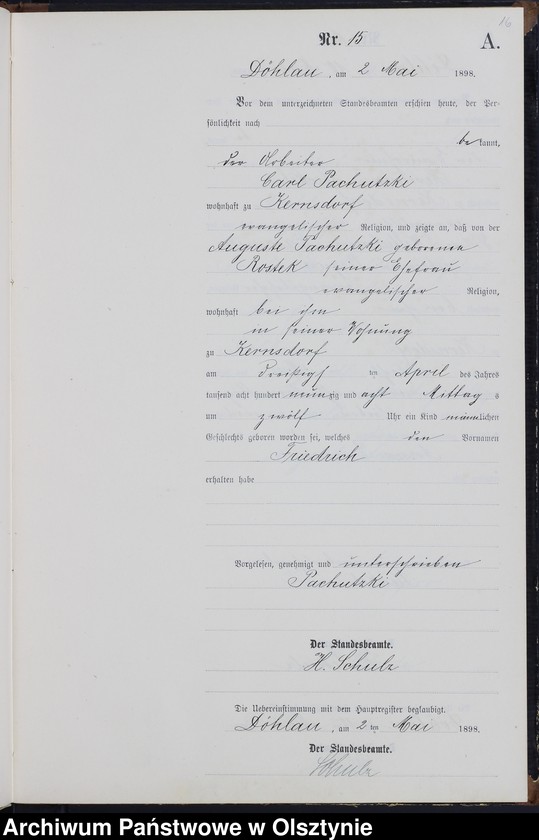 16
Nr. 15
A.
Döhlau, am 2 Mai 1898.
Vor dem unterzeichneten Standesbeamten erschien heute, der Per-
sönlichkeit nach
bekannt,
der Arbeiter
Carl Pachutzki
wohnhaft zu Kernsdorf
evangelischer Religion, und zeigte an, daß von der
Auguste Pachutzki geborenen
Rostek seiner Ehefrau
evangelischer Religion,
wohnhaft bei ihm
in seiner Wohnung
zu Kernsdorf
am dreißigst ten April des Jahres
tausend acht hundert neunzig und acht Mittag s
um zwölf Uhr ein Kind männlichen
Geschlechts geboren worden sei, welches den Vornamen
Friedrich
erhalten habe
Vorgelesen, genehmigt und unterschrieben
Pachutzki
Der Standesbeamte.
H. Schulz
Die Uebereinstimmung mit dem Hauptregister beglaubigt.
Döhlau, am 2 ten Mai 1898.
Der Standesbeamte.
Schulz
Archiwum Państwowe w Olsztynie